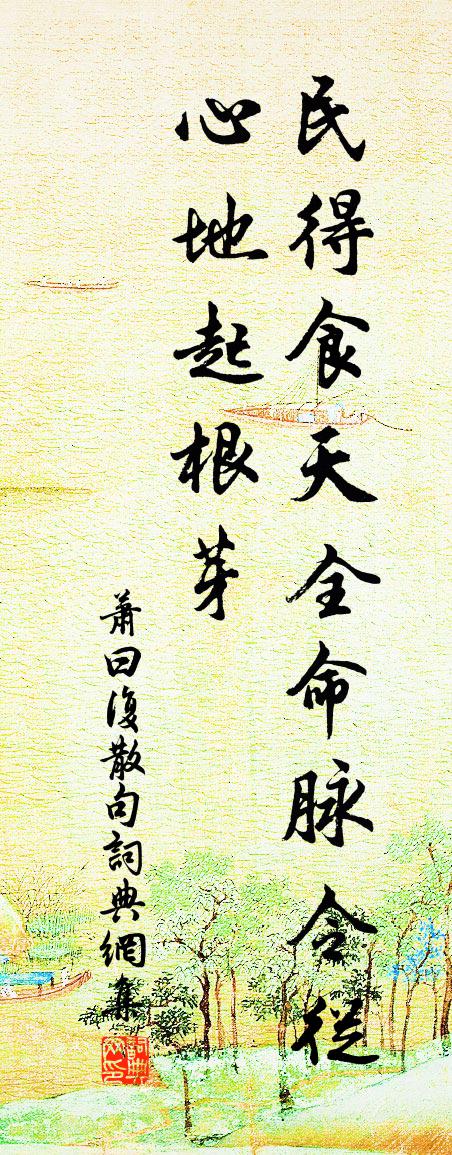 民得食天全命脉令從
心地起根芽
蕭曰復散句詞典網集